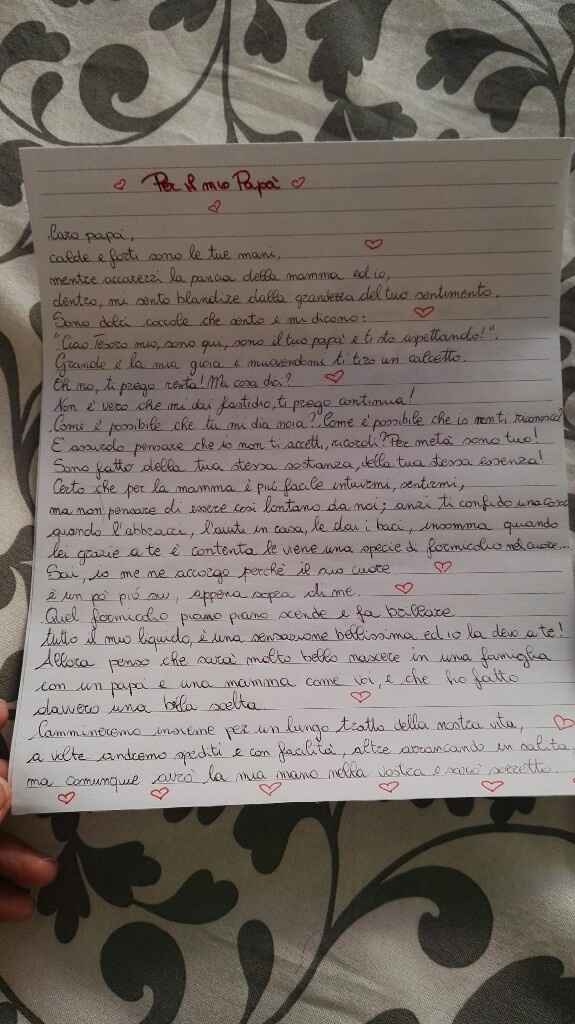 Per il mio Papà
Caro papà,
calde e forti sono le tue mani,
mentre accarezzi la pancia della mamma ed io,
dentro, mi sento blandire dalla grandezza del tuo sentimento.
Sono dolci coccole che sento e mi dicono:
"Ciao Tesoro mio, sono qui, sono il tuo papà e ti sto aspettando!".
Grande è la mia gioia e muovendomi ti tiro un calcetto.
Eh no, ti prego resta! Ma cosa dici?
Non è vero che mi dai fastidio, ti prego continua!
Come è possibile che tu mi dia noia? Come è possibile che io non ti riconosca?
E' assurdo pensare che io non ti accetti, ricordi? Per metà sono tuo!
Sono fatto della tua stessa sostanza, della tua stessa essenza!
Certo che per la mamma è più facile intuirmi, sentirmi,
ma non pensare di essere così lontano da noi; anzi ti confido una cosa
quando l'abbracci, l'aiuti in casa, le dai i baci, insomma quando
lei grazie a te è contenta le viene una specie di formicolio nel cuore...
Sai, io me ne accorgo perchè il suo cuore
è un po' più su, appena sopra di me.
Quel formicolio piano piano scende e fa ballare
tutto il mio liquido, è una sensazione bellissima ed io la devo a te!
Allora penso che sarà molto bello nascere in una famiglia
con un papà e una mamma come voi, e che ho fatto
davvero una bella scelta.
Cammineremo insieme per un lungo tratto della nostra vita,
a volte andremo spediti e con facilità, altre arrancando in salita,
ma comunque avrò la mia mano nella vostra e sarò sorretto.